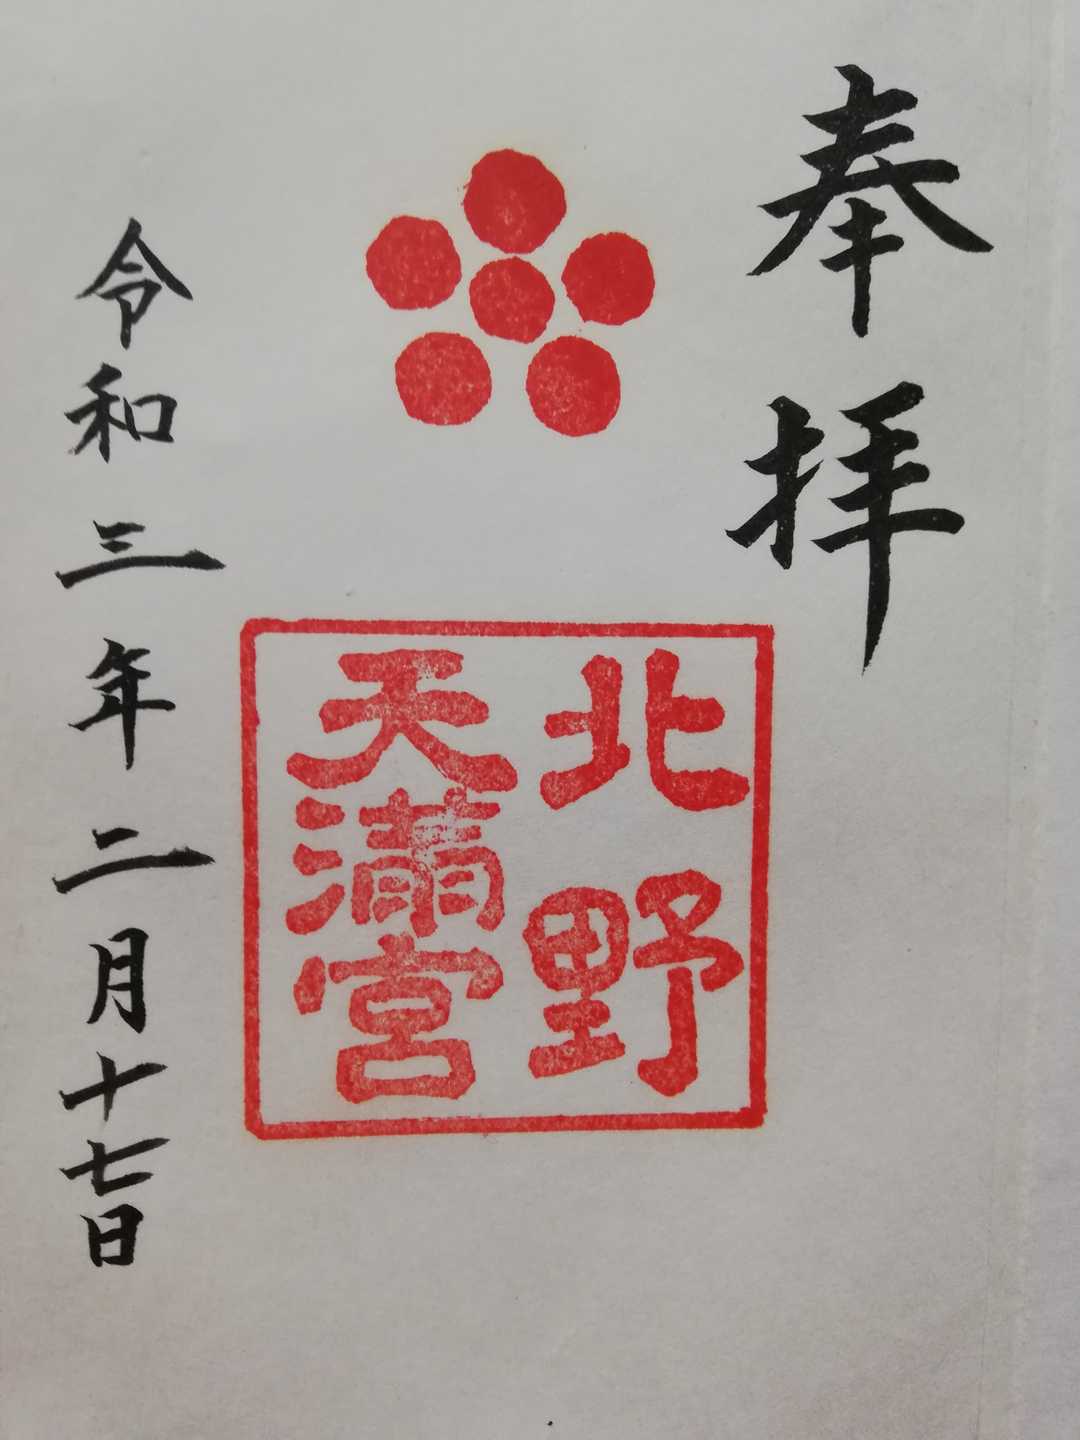 奉拝
北野
天満宮
令和三年二月十七日